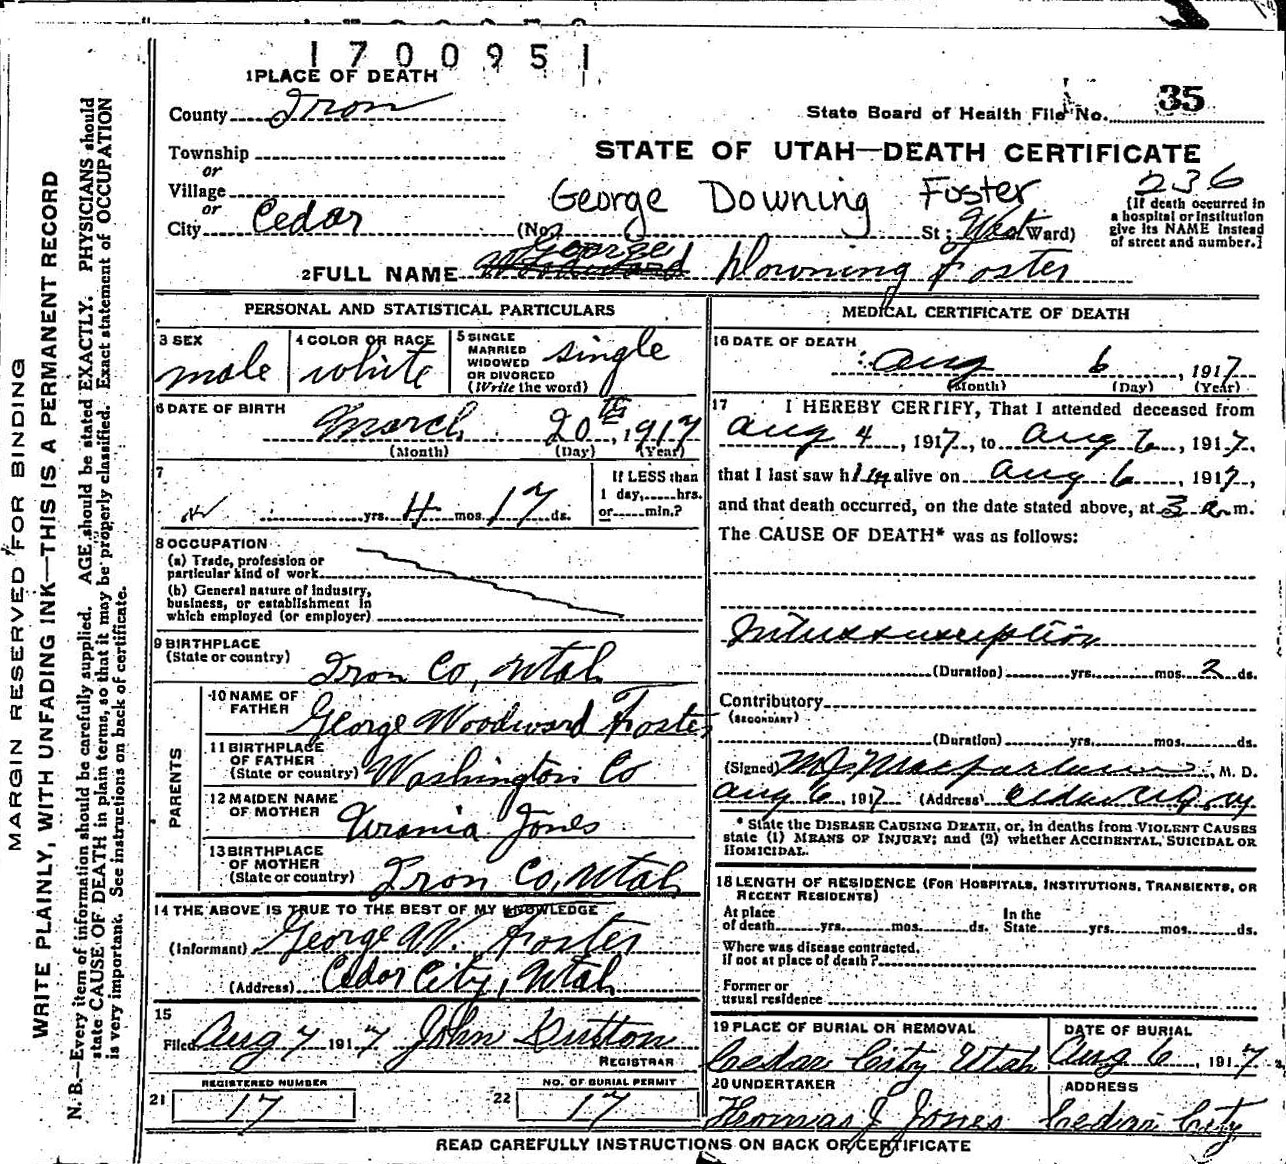 1700951
1 PLACE OF DEATH
County Iron
State Board of Health File No. 35
Township
or
STATE OF UTAH—DEATH CERTIFICATE
Village
or
George Downing Foster
236
City Cedar (No. St; West Ward)
(If death occurred in
a hospital or institution
give its NAME instead
of street and number.]
2 FULL NAME George Downing Foster
PERSONAL AND STATISTICAL PARTICULARS
3 SEX
male
4 COLOR OR RACE
white
5 SINGLE
MARRIED
WIDOWED
OR DIVORCED
(Write the word)
single
6 DATE OF BIRTH
March 20th, 1917
(Month) (Day) (Year)
7
yrs. 4 mos. 17 ds.
If LESS than
1 day,......hrs.
or......min.?
8 OCCUPATION
(a) Trade, profession or
particular kind of work
(b) General nature of industry,
business, or establishment in
which employed (or employer)
9 BIRTHPLACE
(State or country)
Iron Co, Utah
PARENTS
10 NAME OF
FATHER
George Woodward Foster
11 BIRTHPLACE
OF FATHER
(State or country)
Washington Co
12 MAIDEN NAME
OF MOTHER
Urania Jones
13 BIRTHPLACE
OF MOTHER
(State or country)
Iron Co, Utah
14 THE ABOVE IS TRUE TO THE BEST OF MY KNOWLEDGE
(Informant) George W. Foster
(Address) Cedar City, Utah
15
Filed Aug 7 1917 John
REGISTRAR
REGISTERED NUMBER
21 17
NO. OF BURIAL PERMIT
22 17
MEDICAL CERTIFICATE OF DEATH
16 DATE OF DEATH
Aug 6, 1917
(Month) (Day) (Year)
17 I HEREBY CERTIFY, That I attended deceased from
Aug 4, 1917, to Aug 6, 1917.
that I last saw him alive on Aug 6, 1917,
and that death occurred, on the date stated above, at 3 a.m.
The CAUSE OF DEATH* was as follows:
Intussusception
(Duration) yrs. mos. 2 ds.
Contributory
(SECONDARY)
(Duration) yrs. mos. ds.
(Signed) M J Macfarlane, M. D.
Aug 6, 1917 (Address) Cedar City
* State the DISEASE CAUSING DEATH, or, in deaths from VIOLENT CAUSES
state (1) MEANS OF INJURY; and (2) whether ACCIDENTAL, SUICIDAL OR
HOMICIDAL.
18 LENGTH OF RESIDENCE (FOR HOSPITALS, INSTITUTIONS, TRANSIENTS, OR
RECENT RESIDENTS)
At place
of death......yrs.......mos.......ds.
In the
State......yrs.......mos.......ds.
Where was disease contracted,
if not at place of death?
Former or
usual residence
19 PLACE OF BURIAL OR REMOVAL
Cedar City Utah
DATE OF BURIAL
Aug 6, 1917
20 UNDERTAKER
Thomas J Jones
ADDRESS
Cedar City
READ CAREFULLY INSTRUCTIONS ON BACK OF CERTIFICATE
MARGIN RESERVED FOR BINDING
WRITE PLAINLY, WITH UNFADING INK—THIS IS A PERMANENT RECORD
N. B.—Every item of information should be carefully supplied. AGE should be stated EXACTLY. PHYSICIANS should
state CAUSE OF DEATH in plain terms, so that it may be properly classified. Exact statement of OCCUPATION
is very important. See instructions on back of certificate.